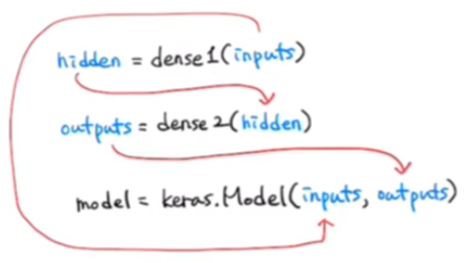 hidden = dense1(inputs)
outputs = dense2(hidden)
model = keras.Model(inputs, outputs)